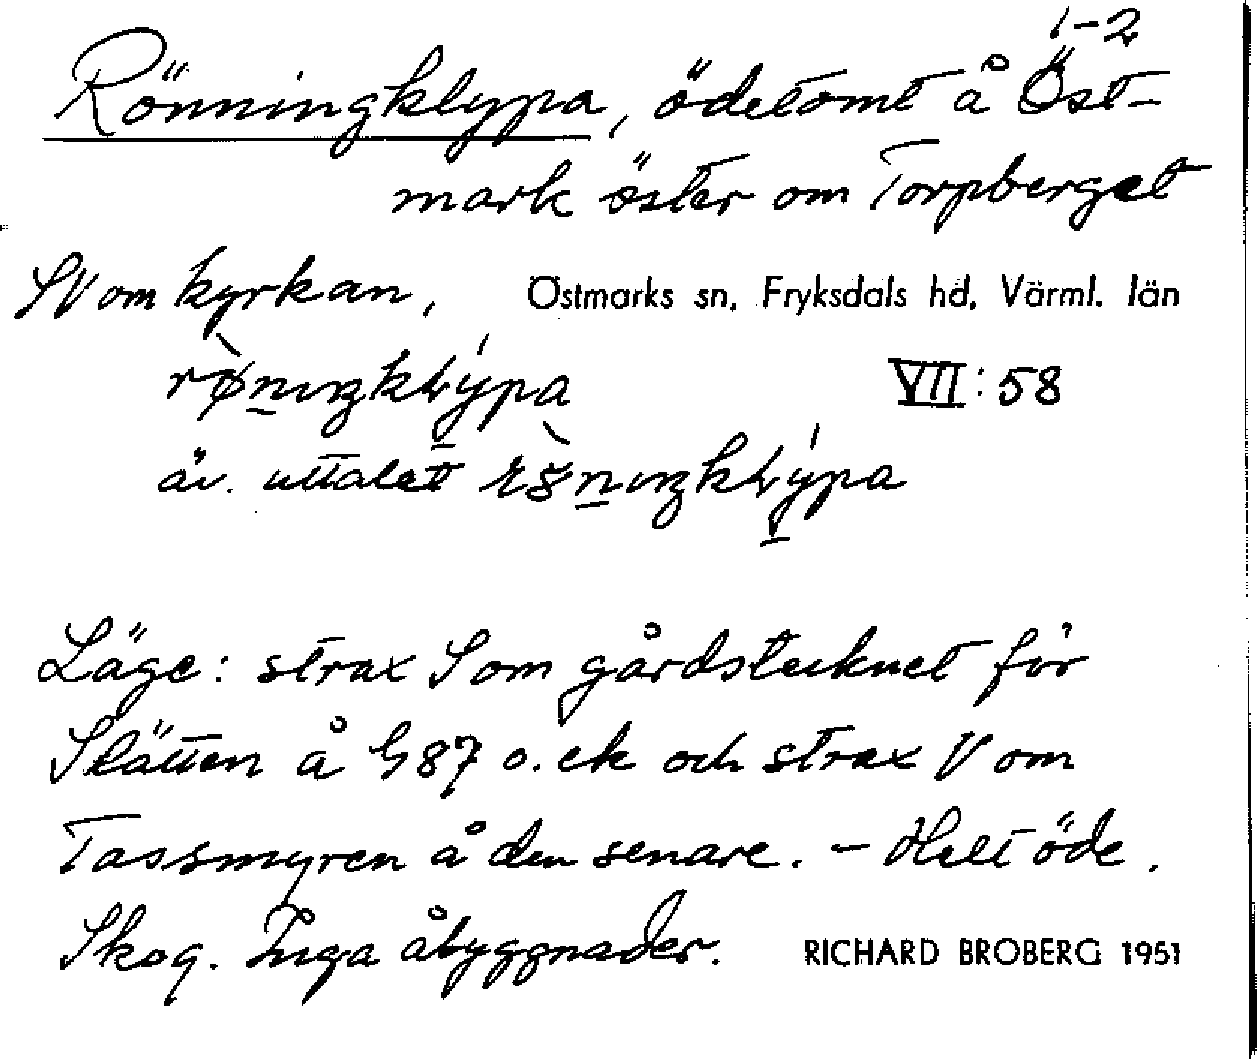 1-2
Rönningklypa, ödetomt å Öst-
mark öster om Torpberget
SV om kyrkan, Östmarks sn, Fryksdals hd, Värml. län
VII:58
äv. uttalat
Läge: strax S om gårdstecknet för
Slätten å G87 o. ek och strax V om
Tassmyren å den senare. - Helt öde.
Skog. Inga åbyggnader. RICHARD BROBERG 1951